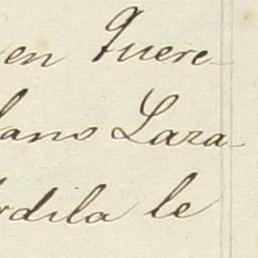 en Quere-
lano Lara-
rdila le